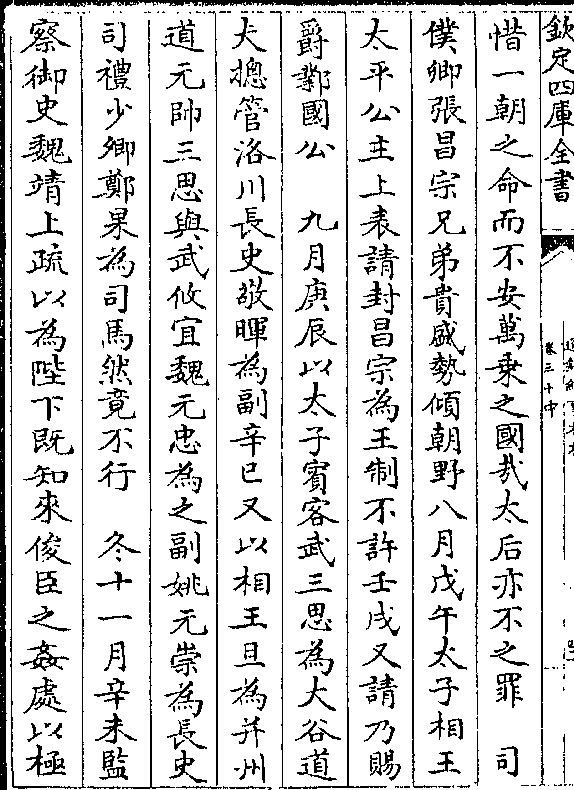 欽定四庫全書
惜一朝之命而不安萬乗之國㢤太后亦不之罪　司
僕卿張昌宗兄弟貴盛勢傾朝野八月戊午太子相王
太平公主上表請封昌宗為王制不許壬戌又請乃賜
爵鄴國公　九月庚辰以太子賓客武三思為大谷道
大摠管洛川長史敬暉為副辛巳又以相王旦為并州
道元帥三思與武攸宜魏元忠為之副姚元崇為長史
司禮少卿鄭杲為司馬然竟不行　冬十一月辛未監
察御史魏靖上疏以為陛下既知來俊臣之姦處以極